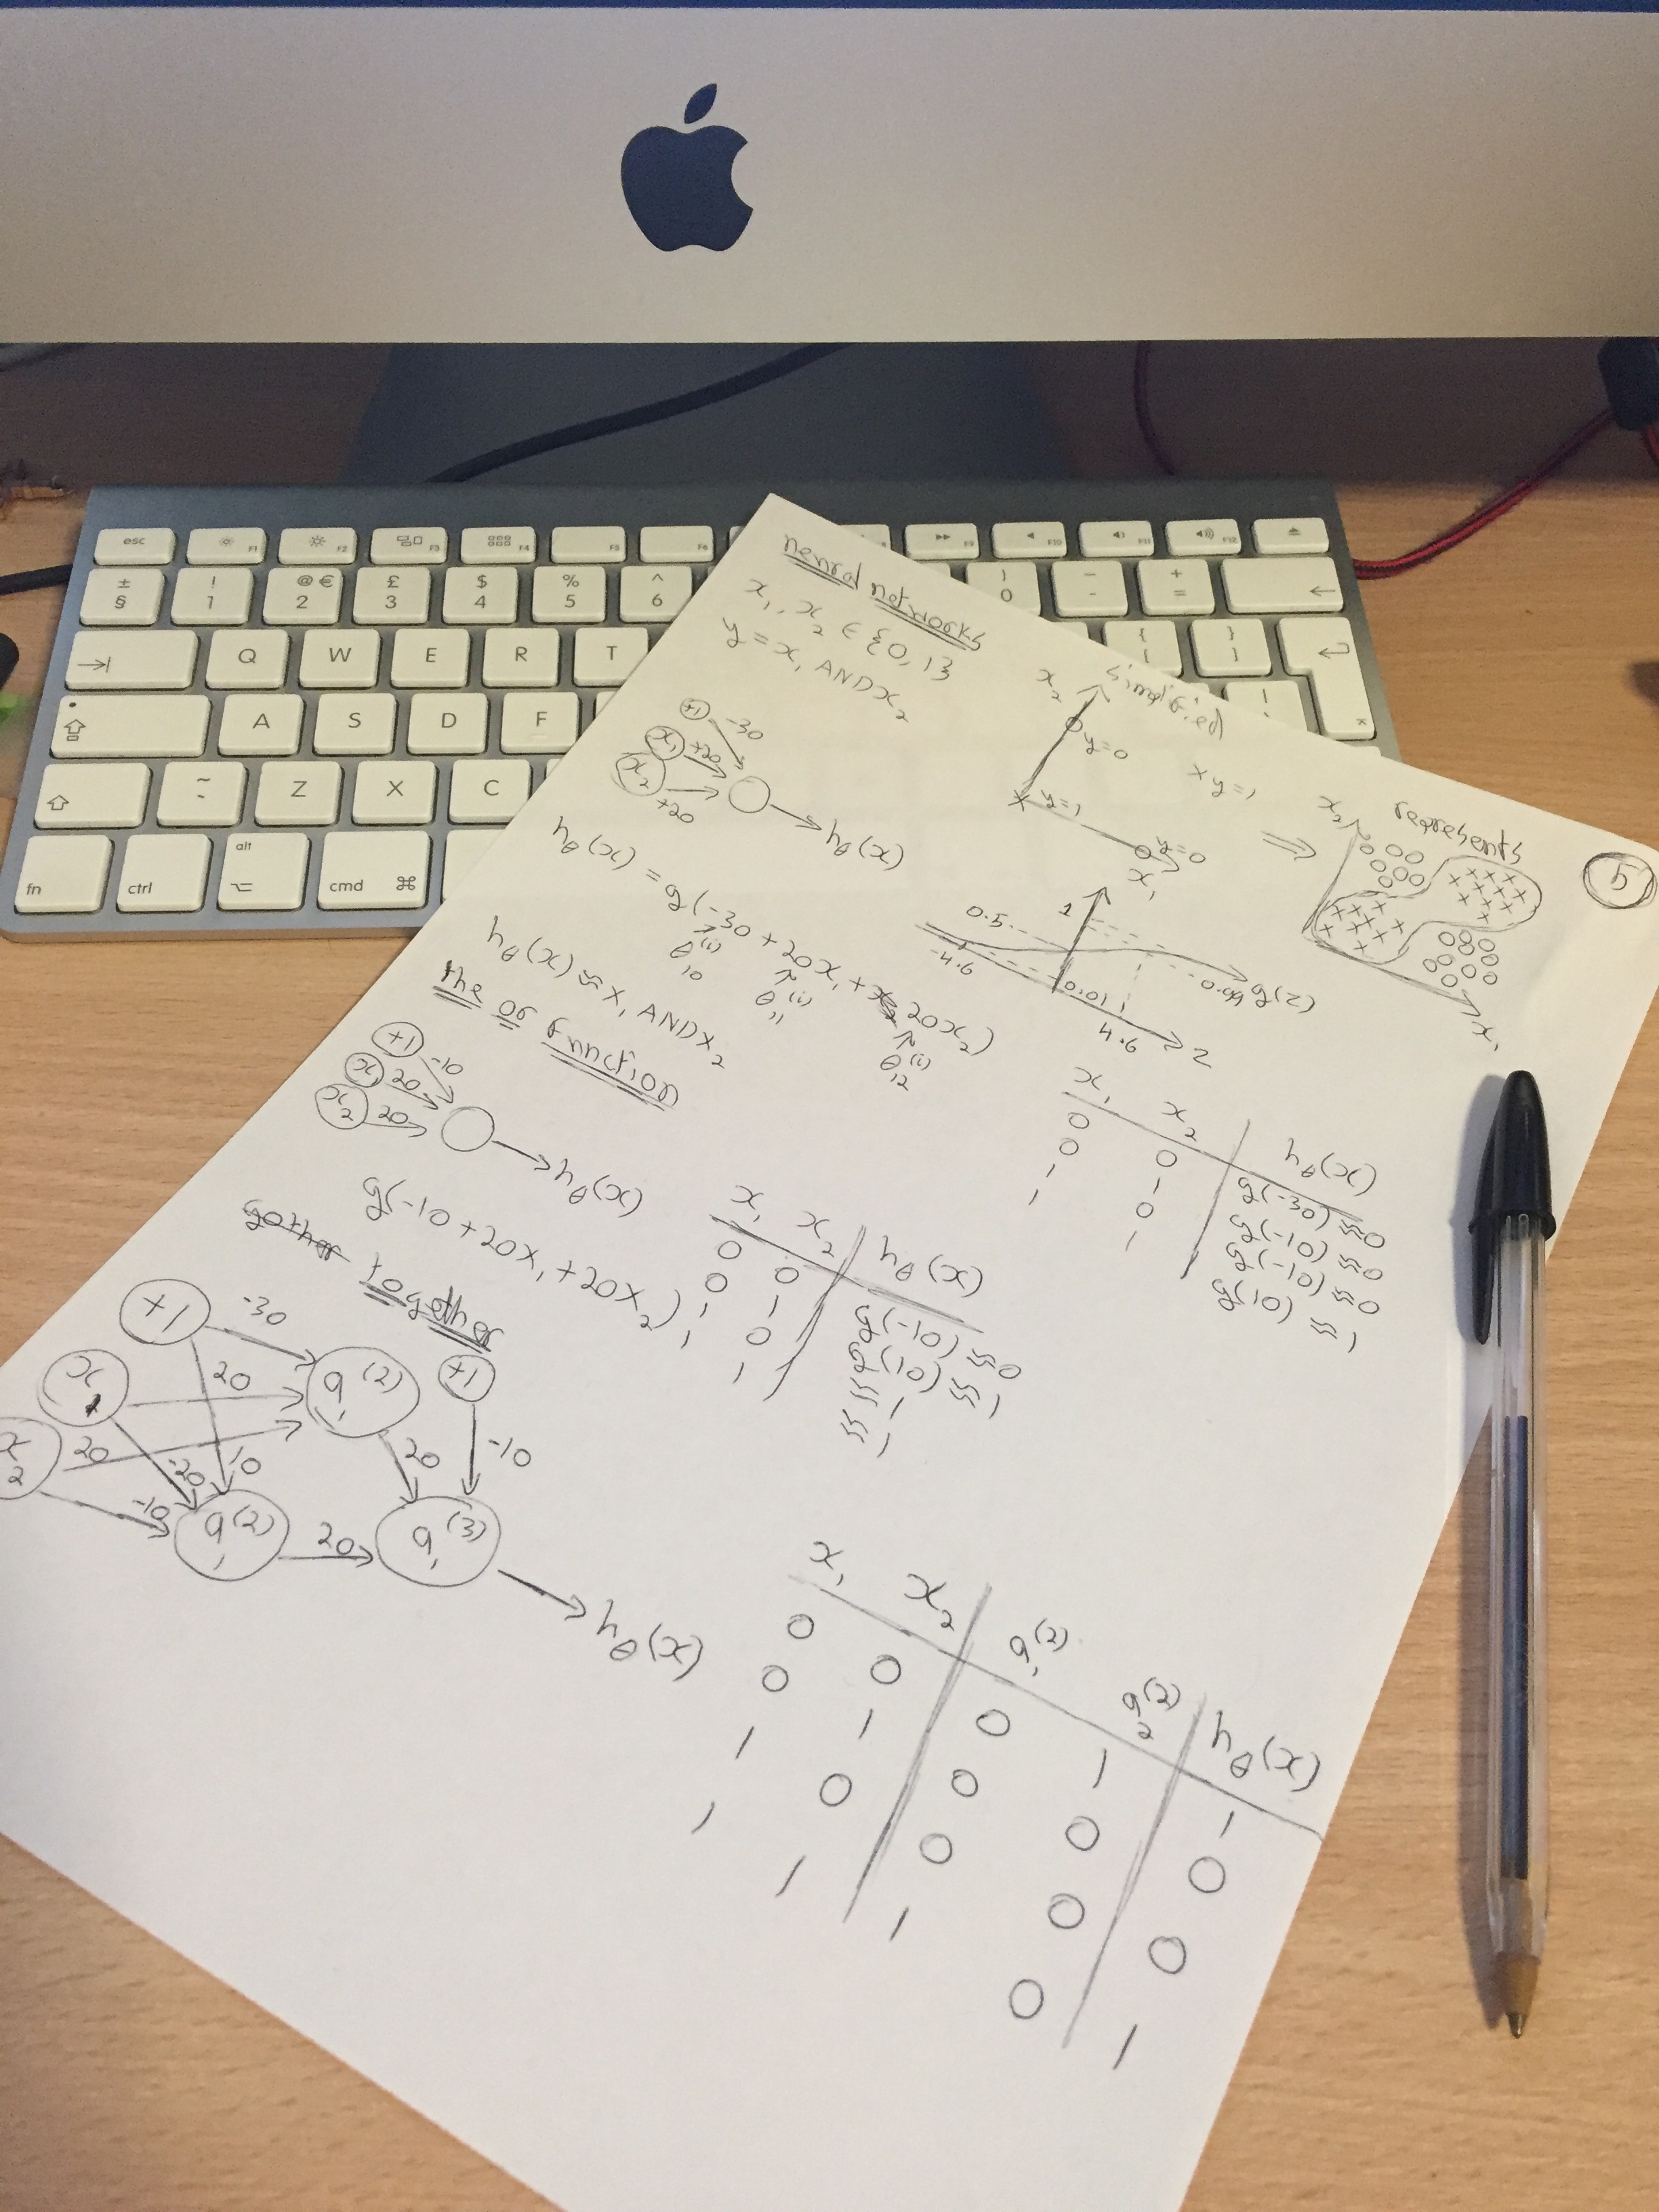 esc F1 F2 F3 F4 F5 F6 F9 F10 F11 F12
± § ! 1 @ € 2 £ 3 $ 4 % 5 ^ 6 ) 0 _ - + =
Q W E R T { [ } ]
A S D F
~ ` Z X C
fn ctrl alt cmd ⌘
neural networks
x₁, x₂ ∈ {0, 1}
y = x₁ AND x₂
+1 -30
x₁ +20
x₂ +20
hθ(x)
hθ(x) = g(-30 + 20x₁ + 20x₂)
θ₁₀⁽¹⁾ θ₁₁⁽¹⁾ θ₁₂⁽¹⁾
hθ(x) ≈ x₁ AND x₂
simplified
x₂
y=0
x y=1
x y=1
y=0
x₁
⇒
represents
x₂
x₁
5
1
0.5
-4.6 0.01 0.99 g(z)
4.6 z
x₁ x₂ hθ(x)
0 0 g(-30) ≈ 0
0 1 g(-10) ≈ 0
1 0 g(-10) ≈ 0
1 1 g(10) ≈ 1
the or function
+1 -10
x₁ 20
x₂ 20
hθ(x)
g(-10 + 20x₁ + 20x₂)
x₁ x₂ hθ(x)
0 0 g(-10) ≈ 0
0 1 g(10) ≈ 1
1 0 ≈ 1
1 1 ≈ 1
together
+1 -30
x₁ 20 a₁⁽²⁾ +1
x₂ 20 -20 10 20 -10
-10 a₁⁽²⁾ 20 a₁⁽³⁾
hθ(x)
x₁ x₂ a₁⁽²⁾ a₂⁽²⁾ hθ(x)
0 0 0 1 1
0 1 0 0 0
1 0 0 0 0
1 1 1 0 1